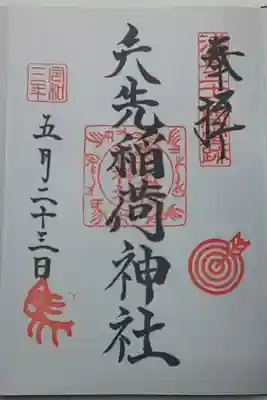 奉拝
矢先稲荷神社
令和
三年
五月二十三日
馬